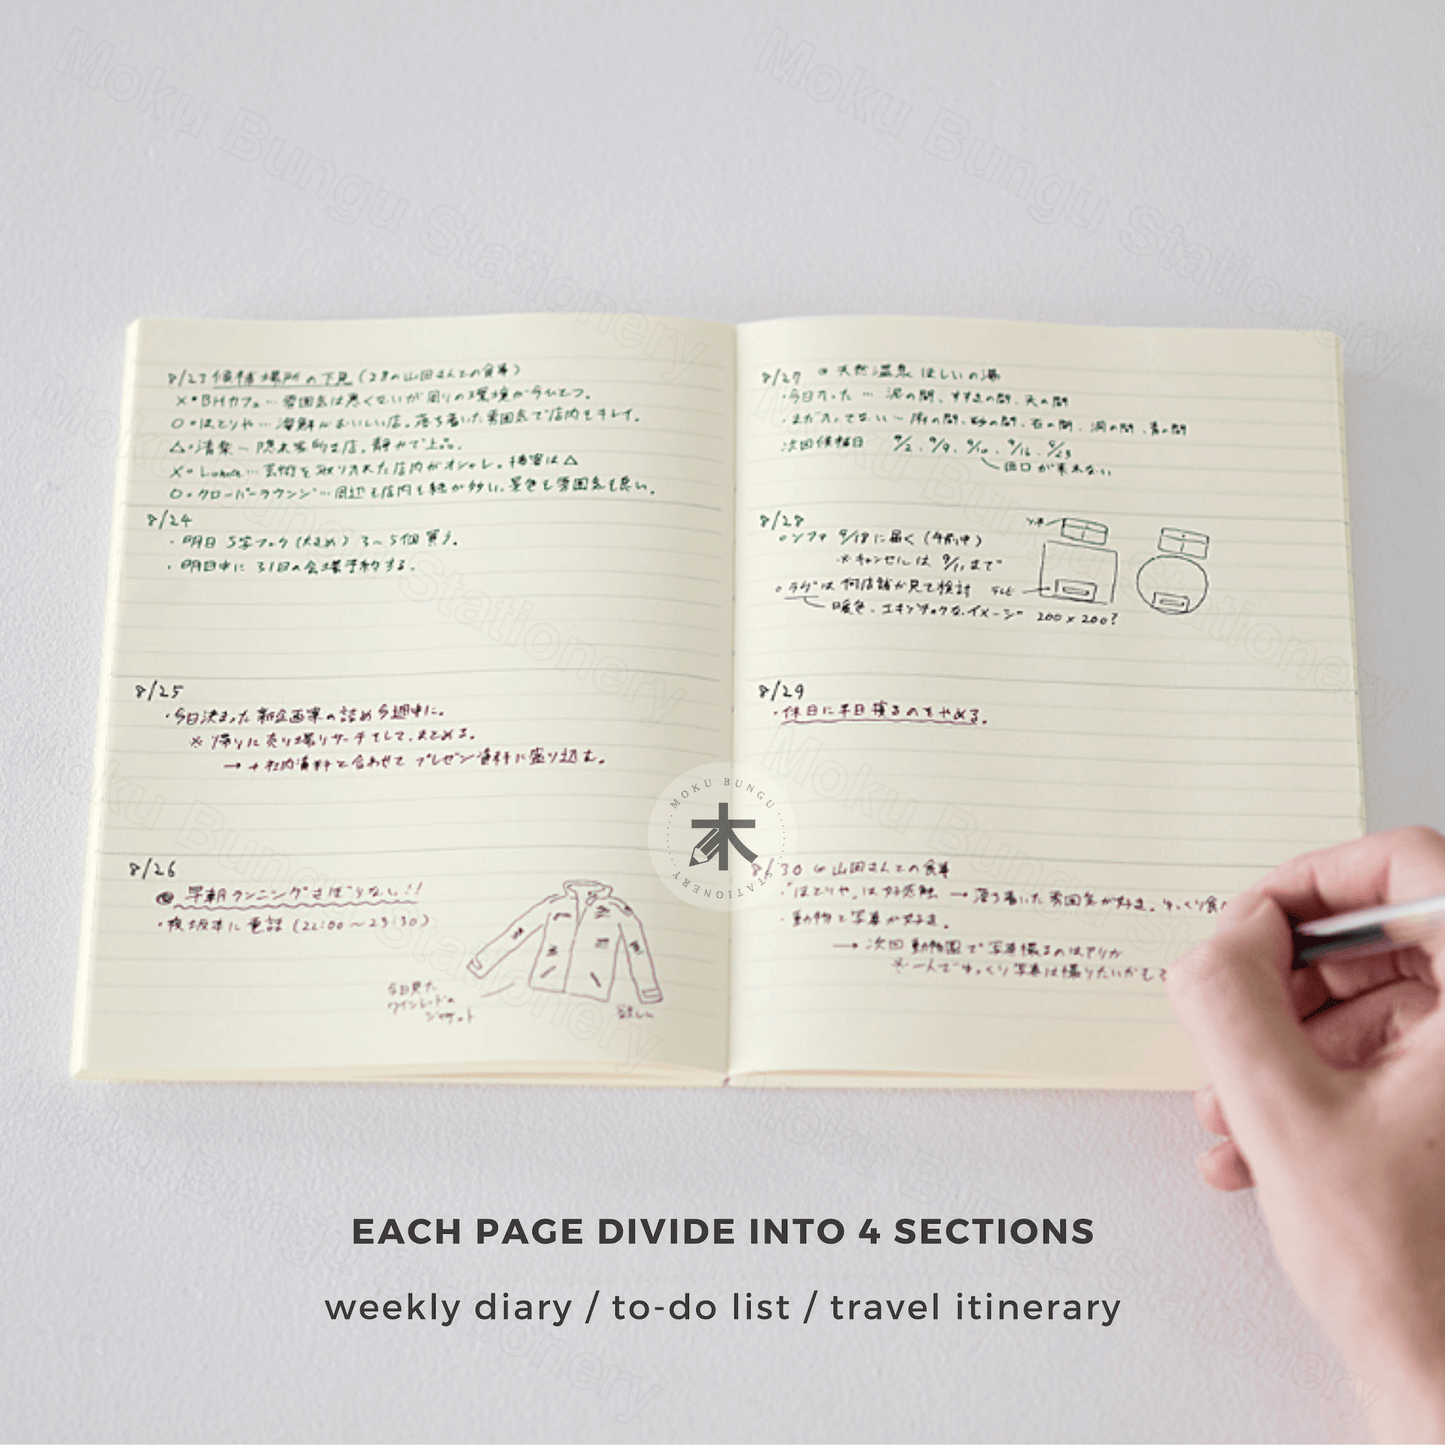 8/23 候補場所の下見 (28の山田さんとの食事)
×・BHカフェ… 雰囲気は悪くないが周りの環境が今ひとつ。
○・ほとりや… 海鮮がおいしい店。落ち着いた雰囲気で店内もキレイ。
△・清楽〜 隠れ家的な店。静かで上品。
×・ … 芸術を取り入れた店内がオシャレ。接客は△
○・クローバーラウンジ… 周辺も店内も緑が多い。景色も雰囲気も良い。
8/24
・明日 S字フック(大きめ) 3〜5個買う。
・明日中に 31日の会場予約する。
8/25
・今日決まった新企画案の詰め今週中に。
※ 帰りに売り場リサーチをして、まとめる。
→ +社内資料と合わせて プレゼン資料に盛り込む。
8/26
早朝ランニングさぼらない!!
・夜坂本に電話 (22:00〜23:30)
今日見た
ワインレッドの
ジャケット
欲しい
8/27 天然温泉 ほしいの湯
・今日入った … 泥の間、すすきの間、天の間
・まだ入ってない〜 の間、砂の間、石の間、洞の間、青の間
次回候補日 9/2、9/9、9/10、9/16、9/23
田口が来れない
8/28
○ソファ 9/18に届く (午前中)
※キャンセルは 9/11まで
○ラグは 何店舗か見て検討
暖色、エキゾチックなイメージ 200×200?
ソファ
テレビ
8/29
・休日に半日寝るのをやめる。
8/30 山田さんとの食事
・「ほとりや」は好感触 → 落ち着いた雰囲気が好き。ゆっくり食べ
・動物と写真が好き。
→ 次回 動物園で写真撮るのはアリか
※一人でゆっくり写真は撮りたいかも
MOKU BUNGU
木
STATIONERY
EACH PAGE DIVIDE INTO 4 SECTIONS
weekly diary / to-do list / travel itinerary
Moku Bungu Stationery